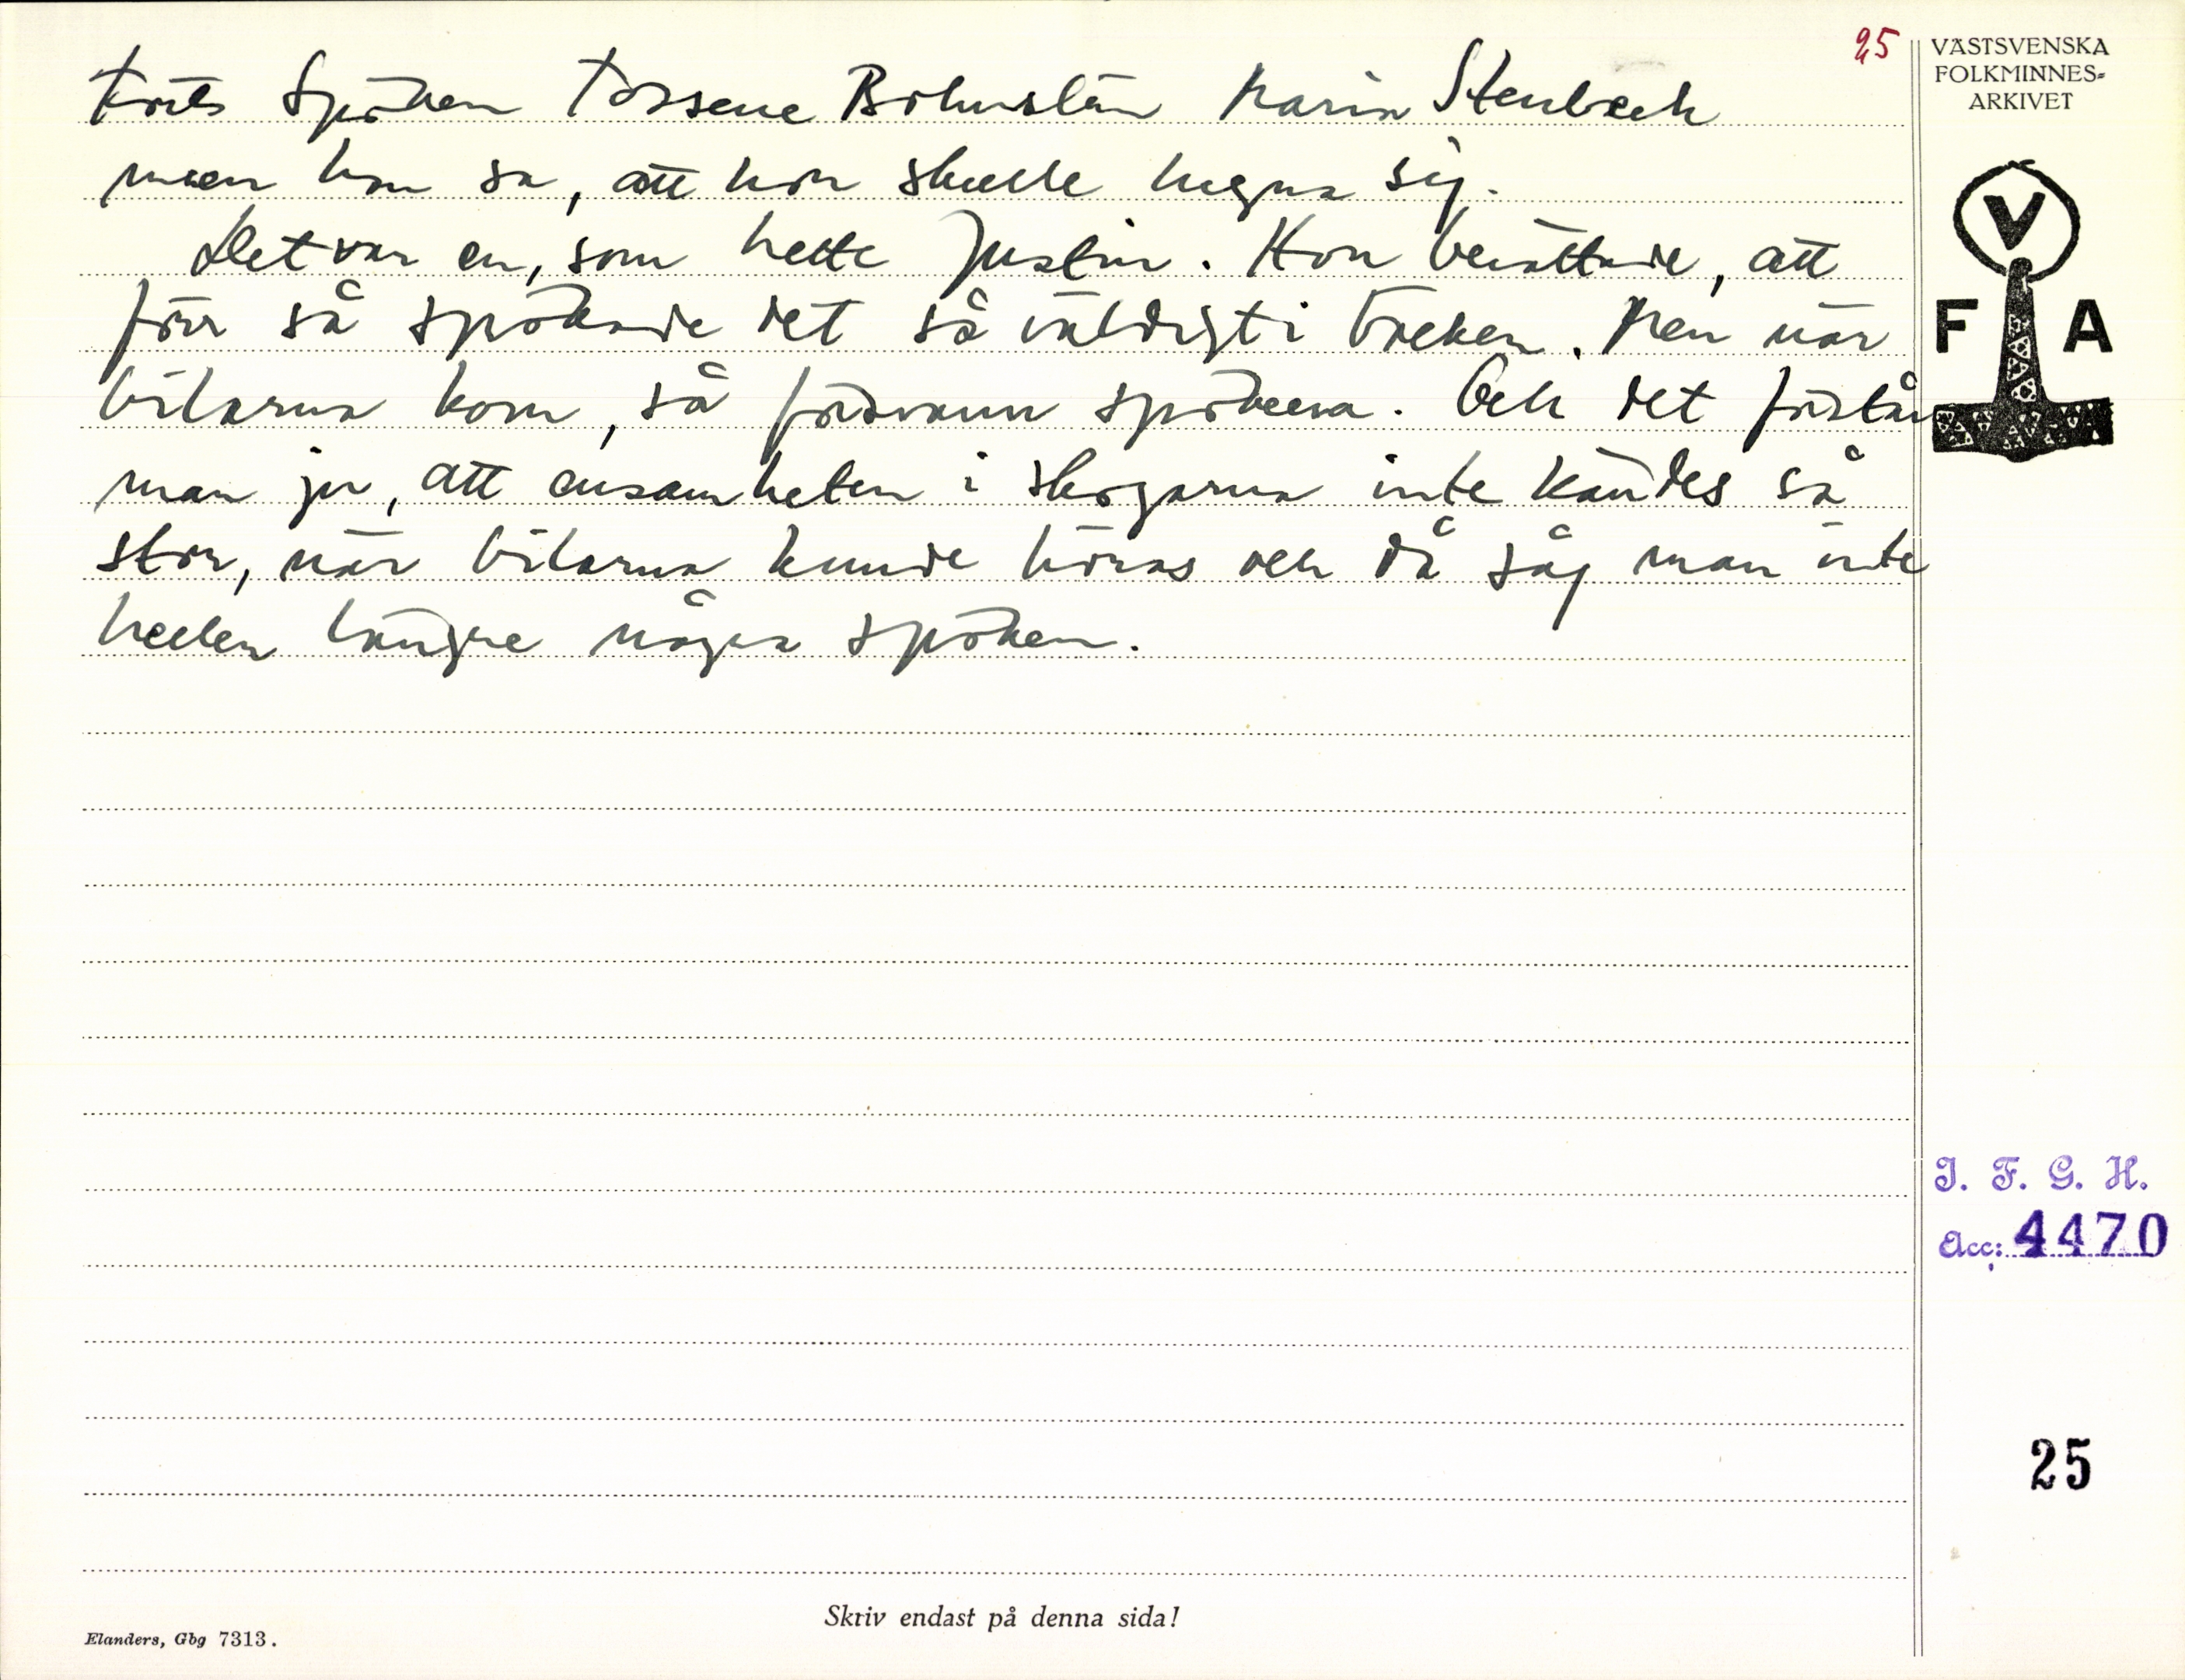 25
Forts Spöken Tossene Bohuslän Maria Stenbeck
men hon sa, att hon skulle lugna sig.
Det var en, som hette Justin. Hon berättade, att
förr så spökade det så väldigt i backen. Men när
bilarna kom, så försvann spökena. Och det förstår
man ju, att ensamheten i skogarna inte kändes så
stor, när bilarna kunde höras och då såg man inte
heller längre några spöken.
VÄSTSVENSKA
FOLKMINNES-
ARKIVET
V
F A
I. F. G. H.
Acc: 4470
25
Skriv endast på denna sida!
Elanders, Gbg 7313.